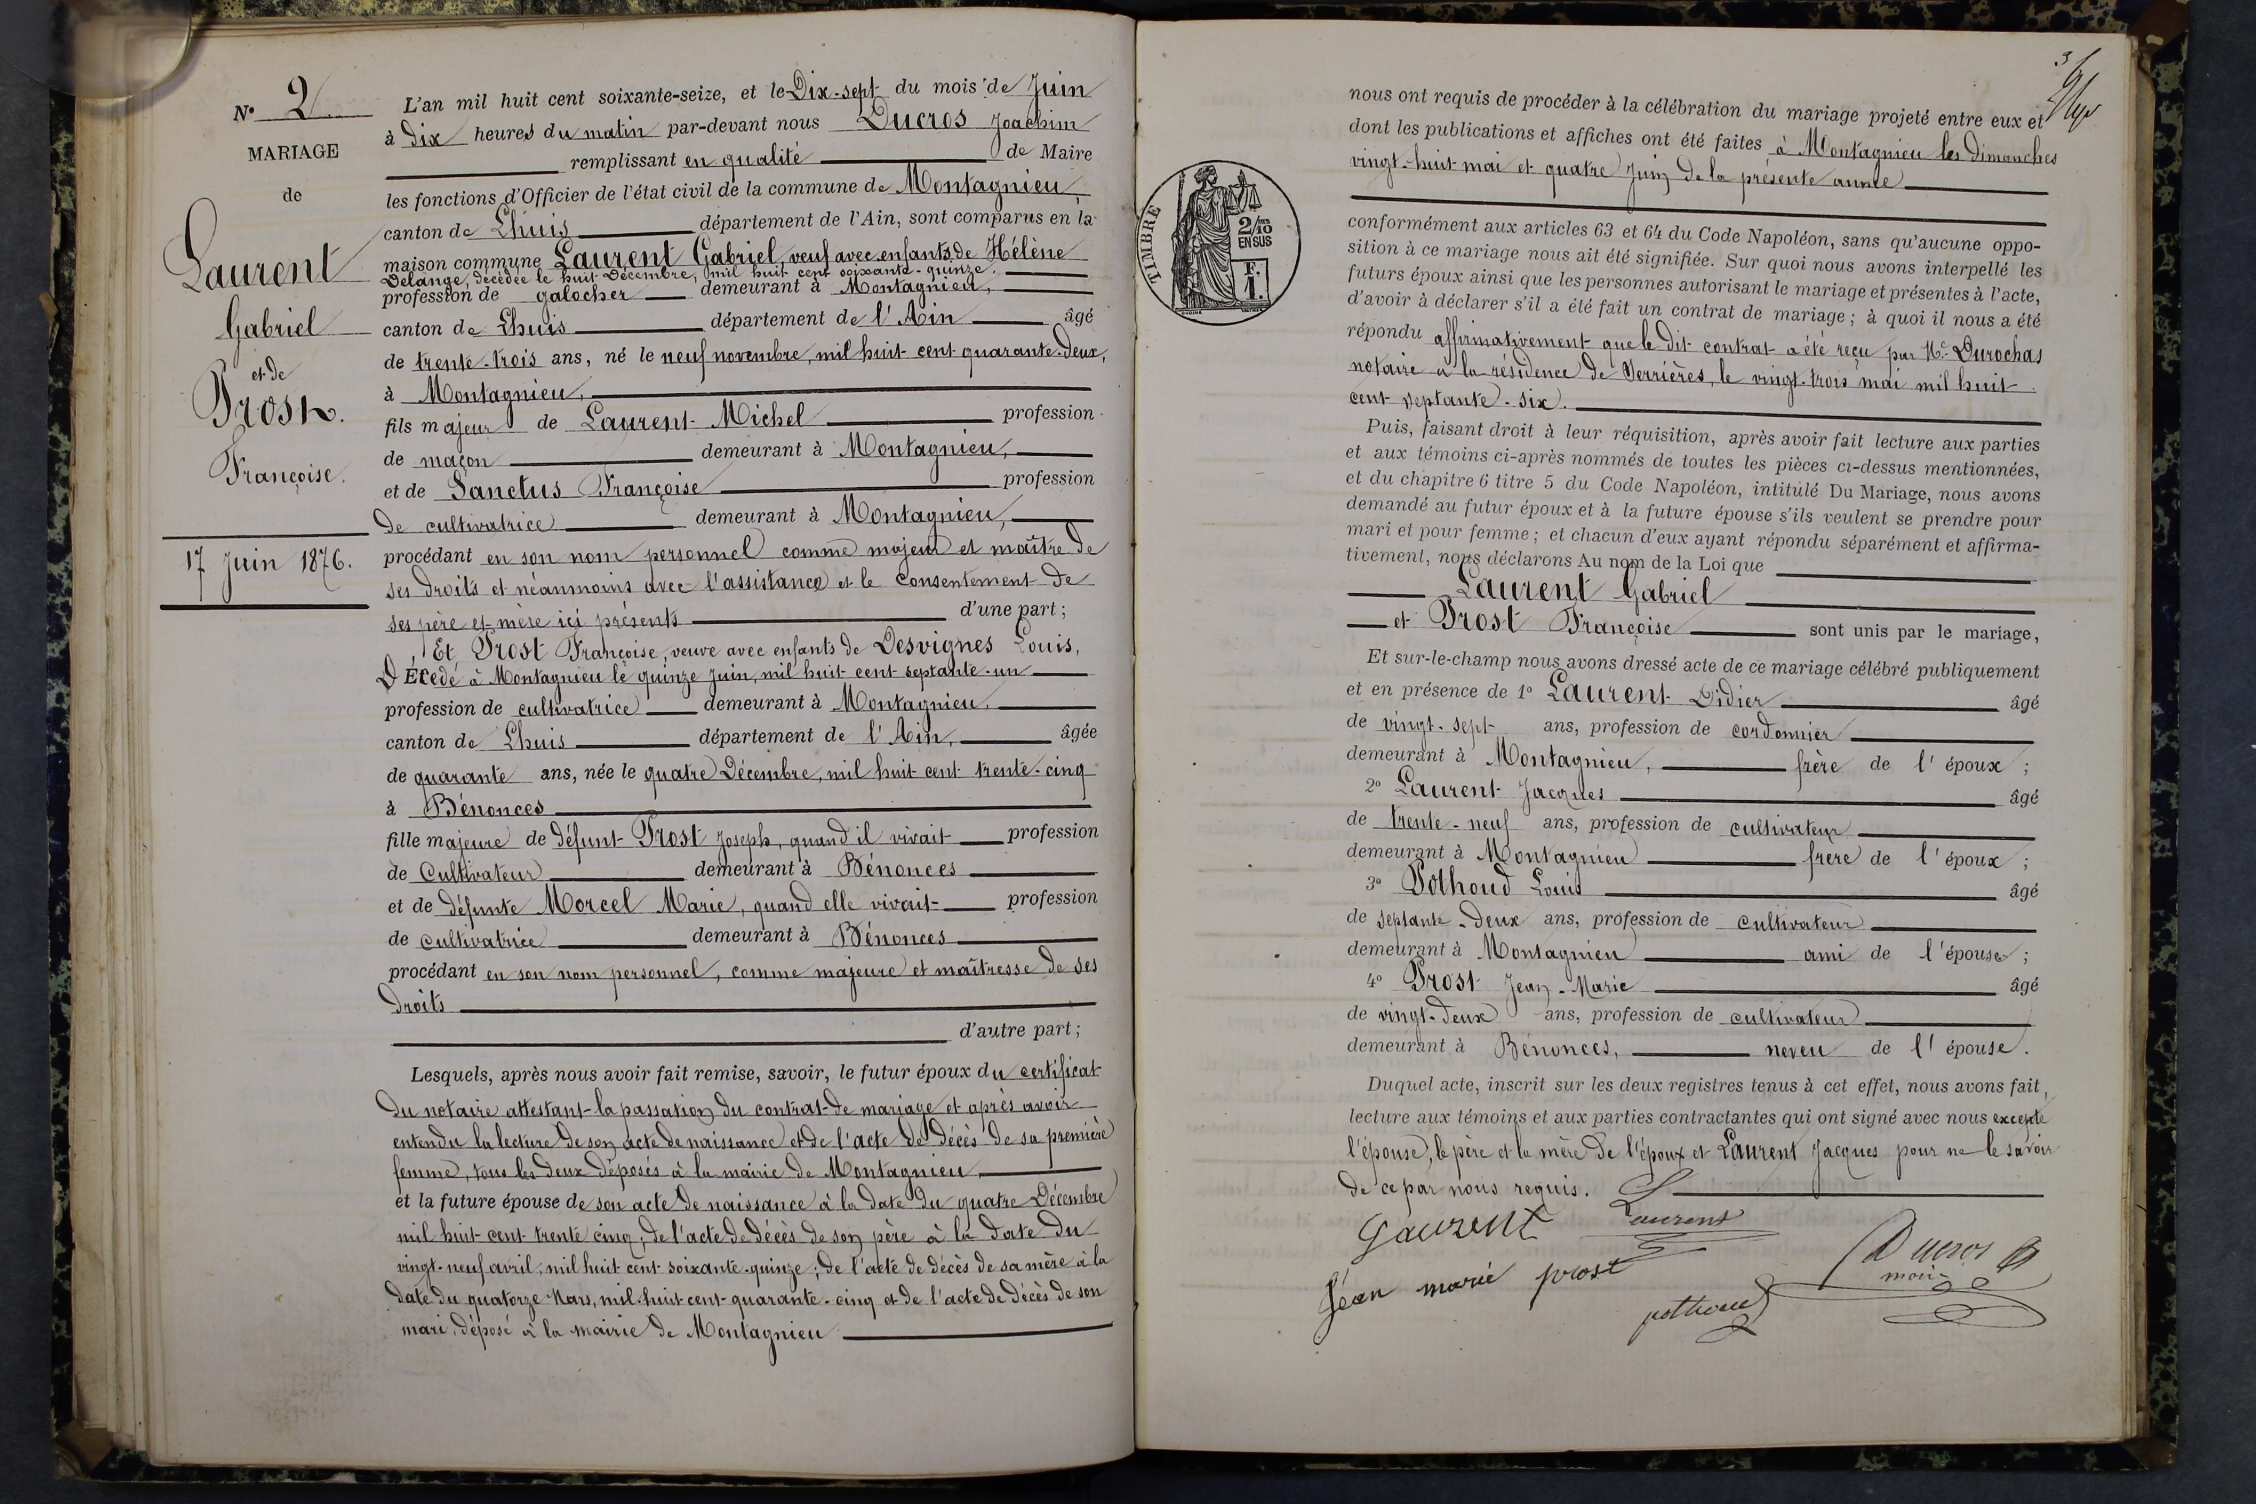 N° 2
MARIAGE
de
Laurent
Gabriel
et de
Prost
Françoise.
17 Juin 1876.
L'an mil huit cent soixante-seize, et le Dix-sept du mois de Juin
à dix heures du matin par-devant nous Ducros Joachim
remplissant en qualité de Maire
les fonctions d'Officier de l'état civil de la commune de Montagnieu,
canton de Lhuis département de l'Ain, sont comparus en la
maison commune Laurent Gabriel, veuf avec enfants de Hélène
Delange, décédée le huit Décembre, mil huit cent soixante-quinze.
profession de galocher demeurant à Montagnieu,
canton de Lhuis département de l'Ain âgé
de trente-trois ans, né le neuf novembre, mil huit cent quarante-deux,
à Montagnieu,
fils majeur de Laurent Michel profession
de maçon demeurant à Montagnieu,
et de Sanctus Françoise profession
de cultivatrice demeurant à Montagnieu,
procédant en son nom personnel comme majeur et maître de
ses droits et néanmoins avec l'assistance et le consentement de
ses père et mère ici présents d'une part;
Et Prost Françoise, veuve avec enfants de Desvignes Louis,
Décédé à Montagnieu le quinze Juin, mil huit cent septante-un
profession de cultivatrice demeurant à Montagnieu,
canton de Lhuis département de l'Ain, âgée
de quarante ans, née le quatre Décembre, mil huit cent trente-cinq
à Bénonces
fille majeure de défunt Prost Joseph, quand il vivait profession
de Cultivateur demeurant à Bénonces
et de défunte Morcel Marie, quand elle vivait profession
de cultivatrice demeurant à Bénonces
procédant en son nom personnel, comme majeure et maîtresse de ses
droits
d'autre part;
Lesquels, après nous avoir fait remise, savoir, le futur époux du certificat
du notaire attestant la passation du contrat de mariage et après avoir
entendu la lecture de son acte de naissance et de l'acte de décès de sa première
femme, tous les deux déposés à la mairie de Montagnieu
et la future épouse de son acte de naissance à la date du quatre Décembre
mil huit cent trente cinq, de l'acte de décès de son père à la date du
vingt-neuf avril, mil huit cent soixante-quinze; de l'acte de décès de sa mère à la
date du quatorze Mars, mil-huit-cent-quarante-cinq et de l'acte de décès de son
mari, déposé à la mairie de Montagnieu
nous ont requis de procéder à la célébration du mariage projeté entre eux et
dont les publications et affiches ont été faites à Montagnieu les dimanches
vingt-huit mai et quatre Juin de la présente année
TIMBRE
2/10
EN SUS
F.
1.
conformément aux articles 63 et 64 du Code Napoléon, sans qu'aucune oppo-
sition à ce mariage nous ait été signifiée. Sur quoi nous avons interpellé les
futurs époux ainsi que les personnes autorisant le mariage et présentes à l'acte,
d'avoir à déclarer s'il a été fait un contrat de mariage; à quoi il nous a été
répondu affirmativement que le dit contrat a été reçu par Me Durochas
notaire à la résidence de Serrières, le vingt-trois mai mil huit
cent septante-six.
Puis, faisant droit à leur réquisition, après avoir fait lecture aux parties
et aux témoins ci-après nommés de toutes les pièces ci-dessus mentionnées,
et du chapitre 6 titre 5 du Code Napoléon, intitulé Du Mariage, nous avons
demandé au futur époux et à la future épouse s'ils veulent se prendre pour
mari et pour femme; et chacun d'eux ayant répondu séparément et affirma-
tivement, nous déclarons Au nom de la Loi que
Laurent Gabriel
et Prost Françoise sont unis par le mariage,
Et sur-le-champ nous avons dressé acte de ce mariage célébré publiquement
et en présence de 1° Laurent Didier âgé
de vingt-sept ans, profession de cordonnier
demeurant à Montagnieu, frère de l'époux;
2° Laurent Jacques âgé
de trente-neuf ans, profession de cultivateur
demeurant à Montagnieu frère de l'époux;
3° Pothoud Louis âgé
de septante-deux ans, profession de cultivateur
demeurant à Montagnieu ami de l'épouse;
4° Prost Jean-Marie âgé
de vingt-deux ans, profession de cultivateur
demeurant à Bénonces, neveu de l'épouse.
Duquel acte, inscrit sur les deux registres tenus à cet effet, nous avons fait
lecture aux témoins et aux parties contractantes qui ont signé avec nous excepté
l'épouse, le père et la mère de l'époux et Laurent Jacques pour ne le savoir
de ce par nous requis.
Laurent
Laurent
Ducros
maire
Jean marie prost
pothoud